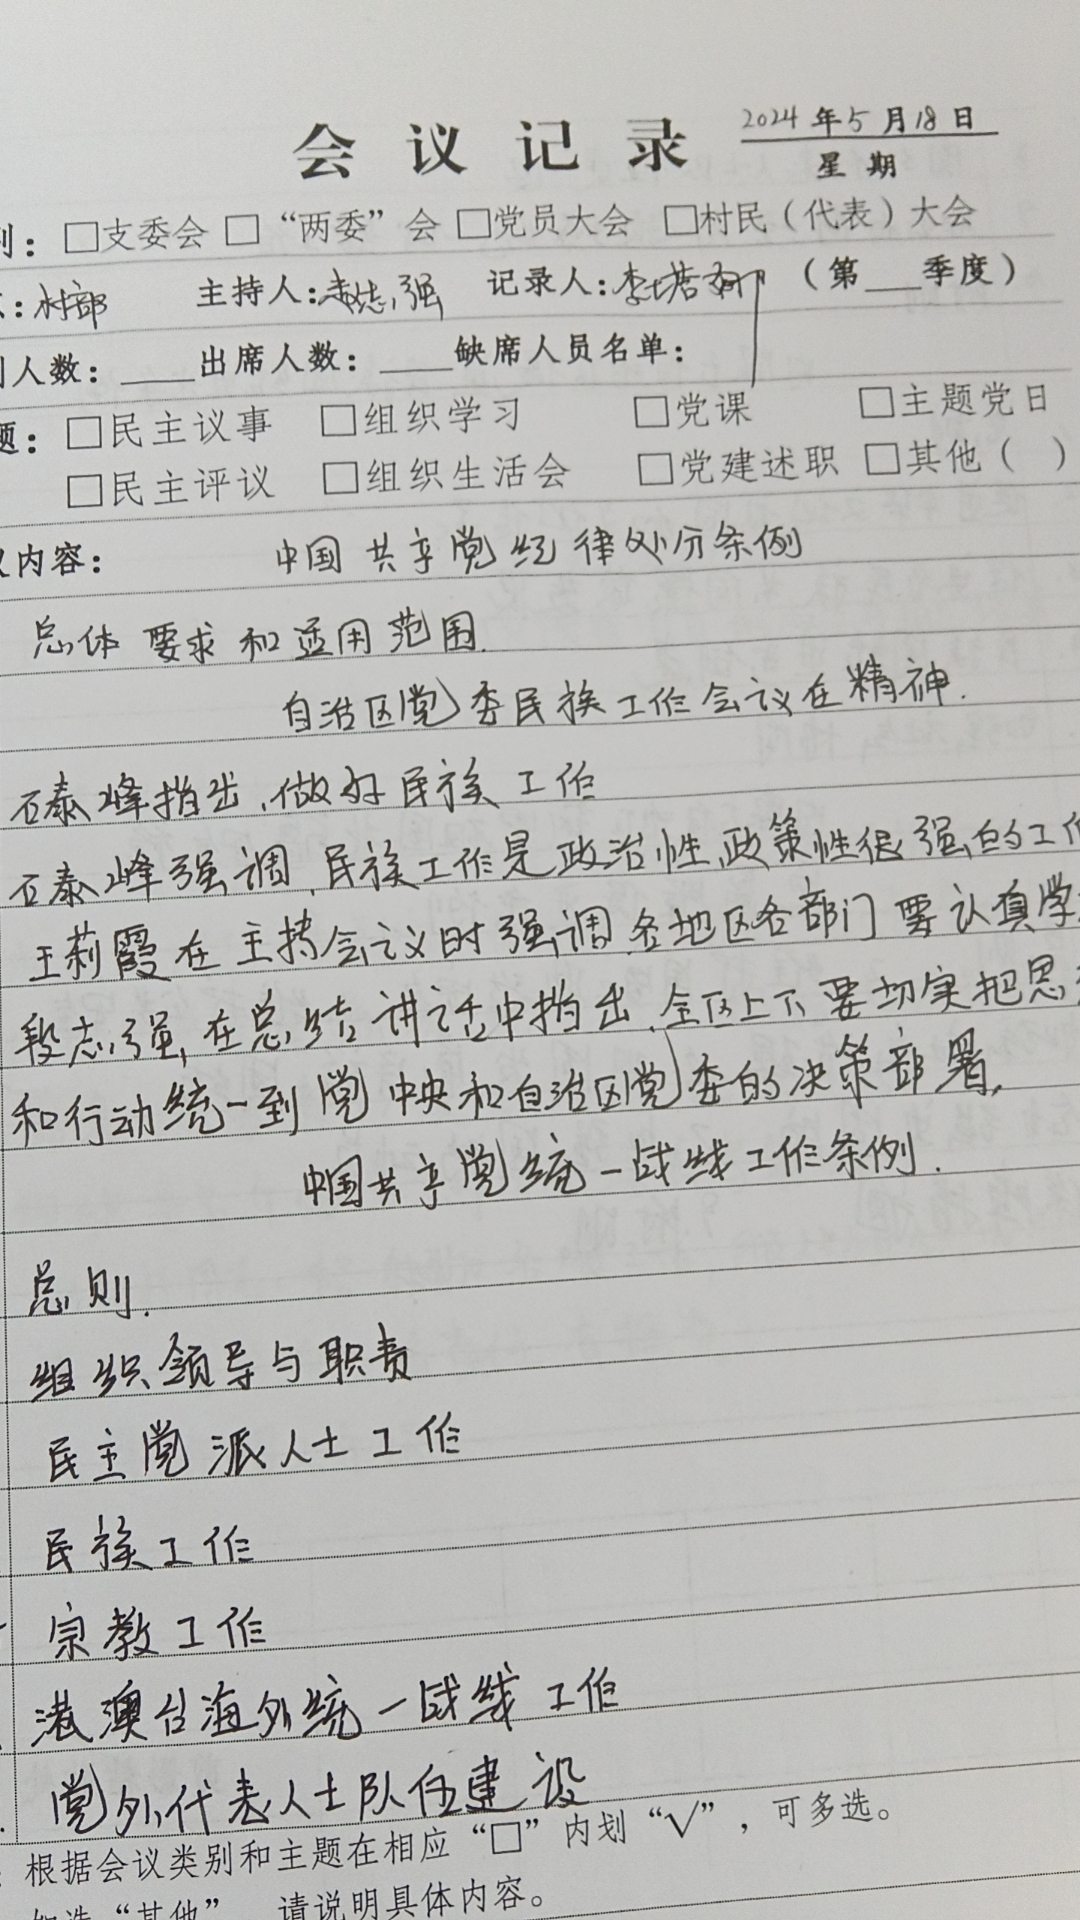 会议记录 2024年5月18日
星期
别：□支委会 □“两委”会 □党员大会 □村民（代表）大会
：村部 主持人：志强 记录人：李塔娜 （第___季度）
人数：____出席人数：____缺席人员名单：
题：□民主议事 □组织学习 □党课 □主题党日
□民主评议 □组织生活会 □党建述职 □其他（ ）
议内容： 中国共产党纪律处分条例
总体要求和适用范围.
自治区党委民族工作会议在精神.
石泰峰指出,做好民族工作
石泰峰强调,民族工作是政治性,政策性很强的工作
王莉霞在主持会议时强调,各地区各部门要认真学
段志强,在总结讲话中指出,全区上下要切实把思
和行动统一到党中央和自治区党委的决策部署,
中国共产党统一战线工作条例.
总则.
组织领导与职责
民主党派人士工作
民族工作
宗教工作
港澳台海外统一战线工作
党外代表人士队伍建设
：根据会议类别和主题在相应“□”内划“√”，可多选。
如选“其他”，请说明具体内容。